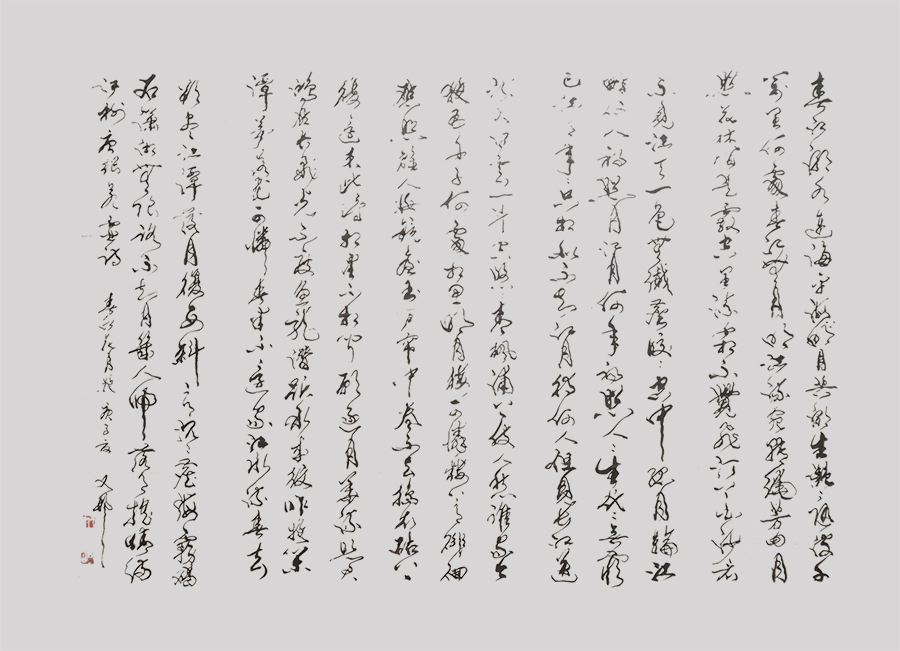 春江潮水連海平海上明月共潮生灩灩隨波千
萬里何處春江無月明江流宛轉繞芳甸月
照花林皆似霰空里流霜不覺飛汀上白沙看
不見江天一色無纖塵皎皎空中孤月輪江
畔何人初見月江月何年初照人人生代代無窮
已江月年年只相似不知江月待何人但見長江送
流水白雲一片去悠悠青楓浦上不勝愁誰家今
夜扁舟子何處相思明月樓可憐樓上月徘徊
應照離人妝鏡臺玉戶簾中卷不去擣衣砧上
拂還來此時相望不相聞願逐月華流照君
鴻雁長飛光不度魚龍潛躍水成文昨夜閒
潭夢落花可憐春半不還家江水流春去
欲盡江潭落月復西斜斜月沉沉藏海霧碣
石瀟湘無限路不知乘月幾人歸落月搖情滿
江樹 唐張若虛詩 春江花月夜 庚子夏